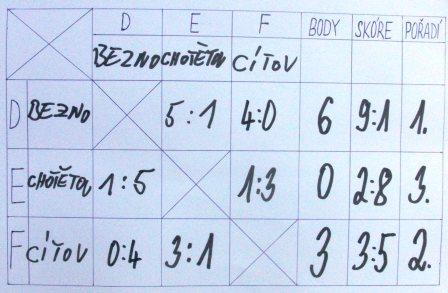 D E F BODY SKÓRE POŘADÍ
BEZNO CHOTĚTOV CÍŤOV
D BEZNO 5:1 4:0 6 9:1 1.
E CHOTĚTOV 1:5 1:3 0 2:8 3.
F CÍŤOV 0:4 3:1 3 3:5 2.